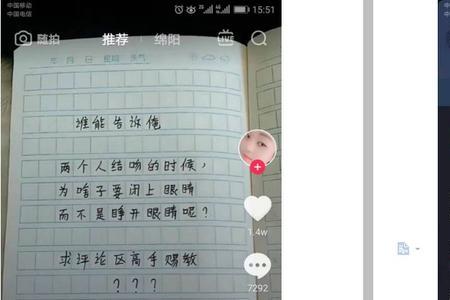 中国移动
中国电信
15:51
随拍
推荐
绵阳
LIVE
年 月 日 星期 天气
谁能告诉俺
两个人结吻的时候，
为啥子要闭上眼睛
而不是睁开眼睛呢？
求评论区高手赐教
？？？
1.4w
7292